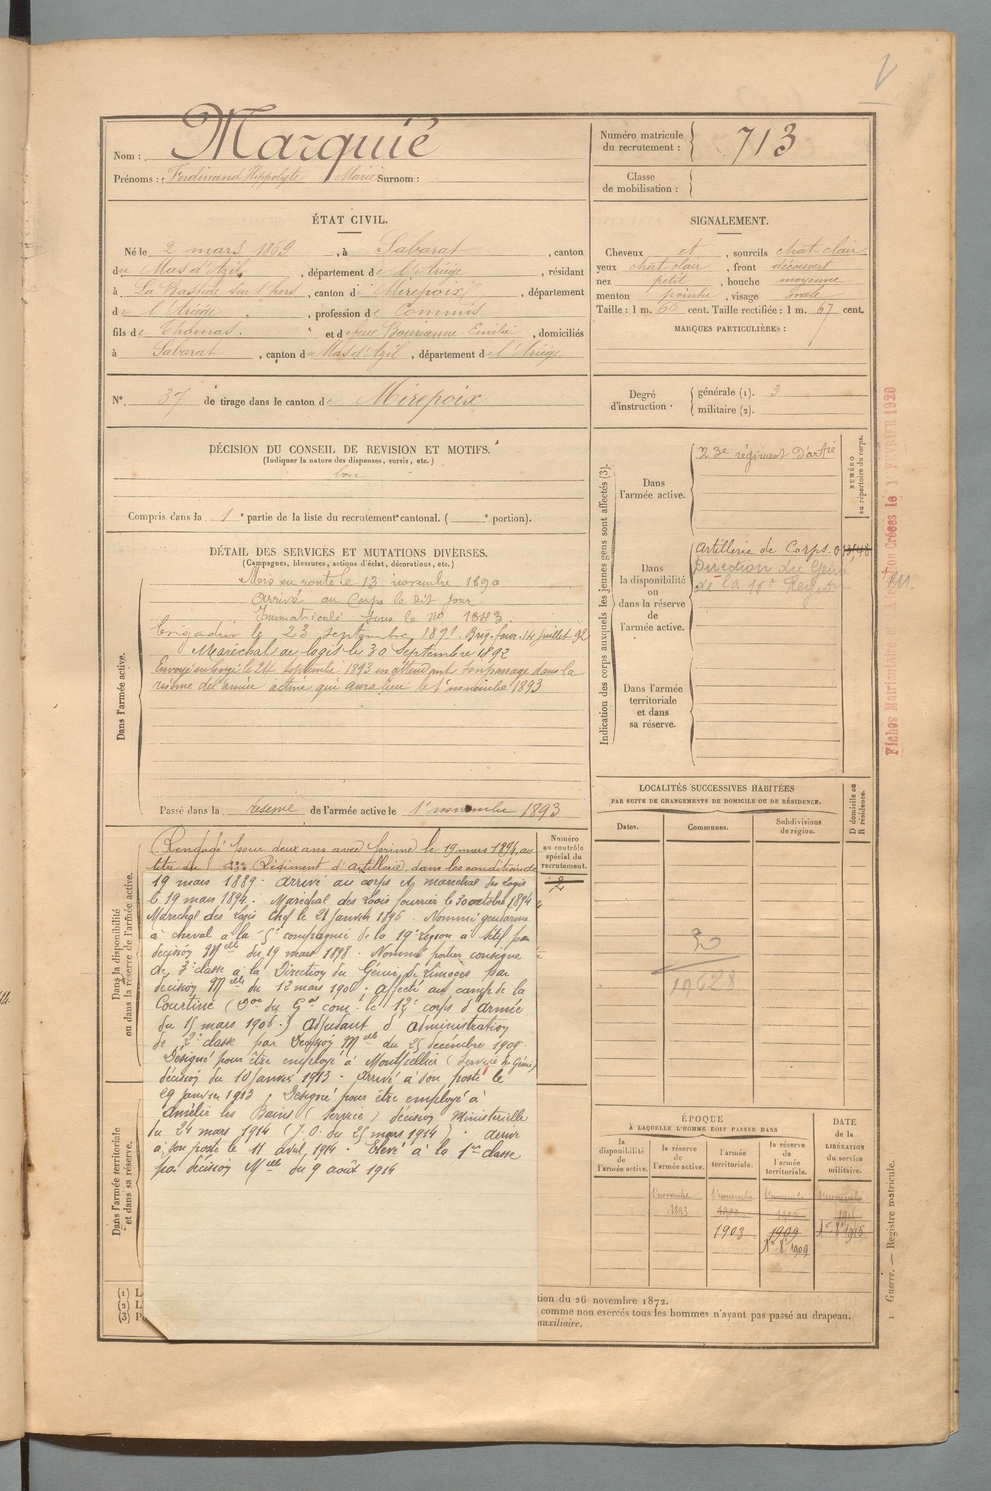 Nom : Marquié
Prénoms : Ferdinand Hippolyte Marie Surnom :
Numéro matricule du recrutement : 713
Classe de mobilisation :
ÉTAT CIVIL.
Né le 2 mars 1869, à Sabarat, canton
du Mas d'Azil, département de l'Ariège, résidant
à La Bastide sur l'hers, canton de Mirepoix, département
de l'Ariège, profession de Commis
fils de Thomas. et de feue Bourianne Emilie, domiciliés
à Sabarat, canton du Mas d'Azil, département de l'Ariège
N° 37 de tirage dans le canton de Mirepoix
SIGNALEMENT.
Cheveux et, sourcils chat-clair
yeux chat clair, front découvert
nez petit, bouche moyenne
menton pointu, visage ovale
Taille : 1 m. 66 cent. Taille rectifiée : 1 m. 67 cent.
MARQUES PARTICULIÈRES :
Degré d'instruction
générale (1). 3
militaire (2).
DÉCISION DU CONSEIL DE REVISION ET MOTIFS.
(Indiquer la nature des dispenses, sursis, etc.)
bon
Compris dans la 1e partie de la liste du recrutement cantonal. ( e portion).
DÉTAIL DES SERVICES ET MUTATIONS DIVERSES.
(Campagnes, blessures, actions d'éclat, décorations, etc.)
Dans l'armée active.
Mis en route le 13 novembre 1890
Arrivé au Corps le dit jour.
Immatriculé sous le N° 1843.
Brigadier le 23 septembre 1891. Brig. four. 14 juillet 92
Maréchal de logis le 30 septembre 1892
Envoyé en congé le 24 septembre 1893 en attendant son passage dans la
réserve de l'armée active qui aura lieu le 1er novembre 1893
Passé dans la réserve de l'armée active le 1er novembre 1893
Dans la disponibilité
ou dans la réserve de l'armée active.
Rengagé pour deux ans avec prime le 19 mars 1894, au
titre du 23e Régiment d'artillerie, dans les conditions de
19 mars 1889. arrivé au corps et maréchal des logis
le 19 mars 1894. Maréchal des Logis fourrier le 30 octobre 1894
Maréchal des Logis Chef le 21 janvier 1896. Nommé gendarme
à cheval à la 5e compagnie de la 19e légion à Sétif par
décision Mlle du 19 mars 1898. Nommé portier consigne
de 3e classe à la Direction du Génie de Limoges par
décision Mlle du 12 mars 1900. affecté au camp de la
Courtine ( du Gal com. le 12e corps d'armée
du 15 mars 1906.) adjudant d'administration
de 2e classe par Décision Mlle du 25 décembre 1909.
Désigné pour être employé à Montpellier (Service du Génie)
décision du 10 janvier 1913. arrivé à son poste le
29 janvier 1913, Désigné pour être employé à
Amélie les Bains (Service) décision Ministérielle
du 24 mars 1914 (J.O. du 25 mars 1914). arrivé
à son poste le 11 avril 1914. Elevé à la 1re classe
par décision Mlle du 9 août 1914
Dans l'armée territoriale
et dans sa réserve.
Numéro au contrôle spécial du recrutement.
2
Indication des corps auxquels les jeunes gens sont affectés (3).
NUMÉRO au répertoire du corps.
Dans l'armée active.
23e régiment d'artie
Dans la disponibilité ou dans la réserve de l'armée active.
Artillerie de Corps.
Direction du Génie
de la 16e Région
Dans l'armée territoriale et dans sa réserve.
LOCALITÉS SUCCESSIVES HABITÉES
PAR SUITE DE CHANGEMENTS DE DOMICILE OU DE RÉSIDENCE.
D domicile ou R résidence.
Dates. Communes. Subdivisions de région.
19628
ÉPOQUE
À LAQUELLE L'HOMME DOIT PASSER DANS
la disponibilité de l'armée active.
la réserve de l'armée active.
l'armée territoriale.
la réserve de l'armée territoriale.
DATE de la LIBÉRATION du service militaire.
1 novembre 1893
1 novembre
1903
1909
1909
Fiches Matriculaire et d'Action Créées le 1 FEVRIER 1920
Guerre. — Registre matricule.
(1) L
(2) L
(3) Po
tion du 26 novembre 1872.
comme non exercés tous les hommes n'ayant pas passé au drapeau.
auxiliaire.